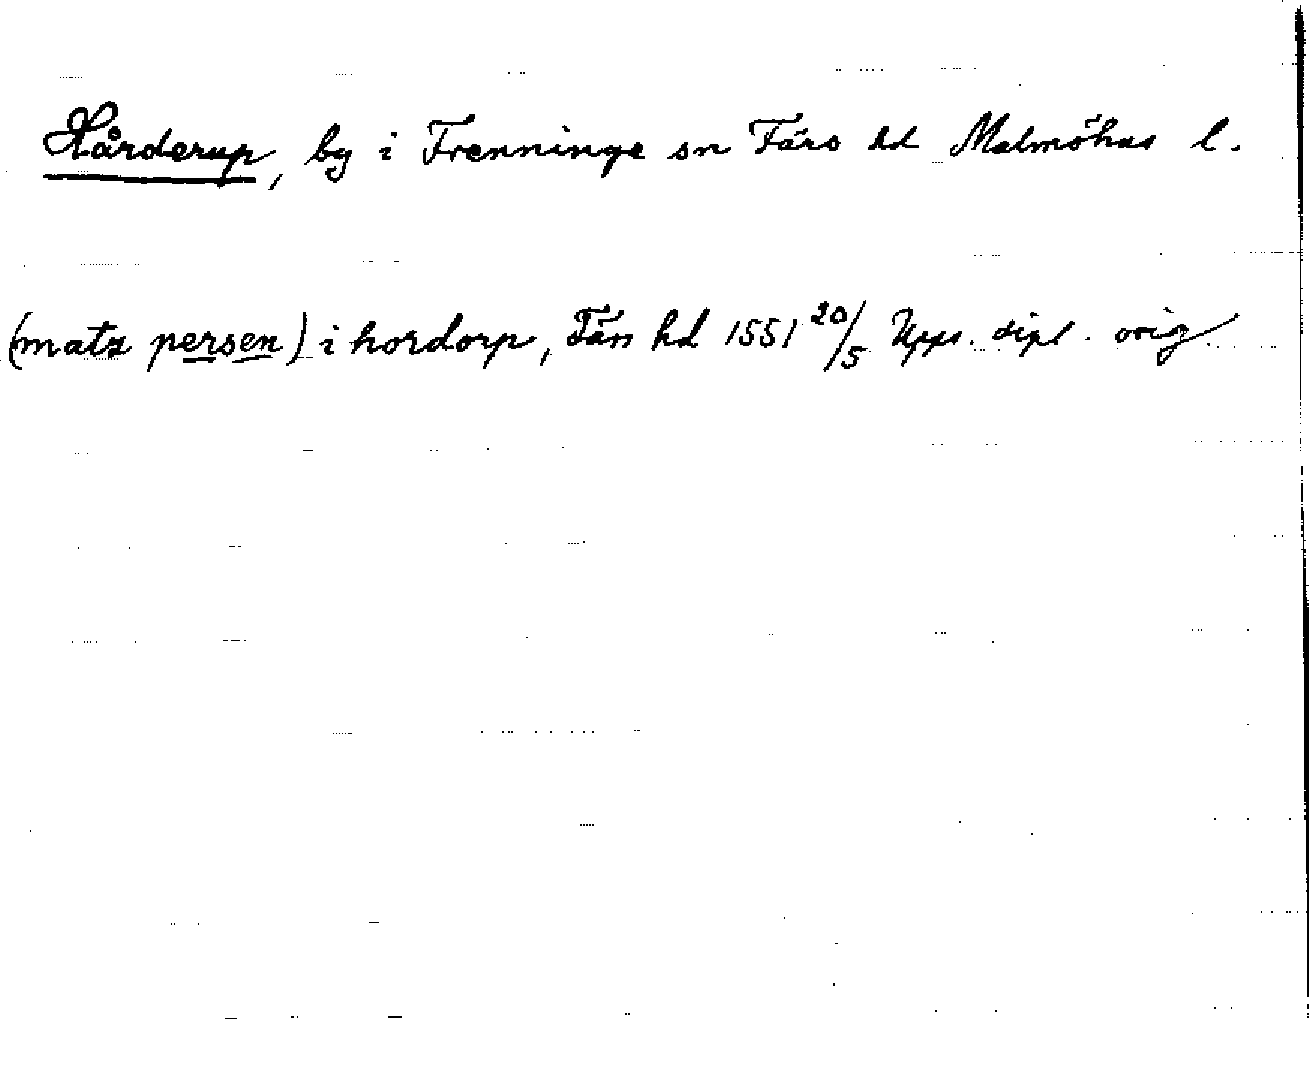 Hårderup, by i Trenninge sn Färs hd Malmöhus l.
(matz persen) i hordorp, Färs hd 1551 20/5 Upps. dipl. orig